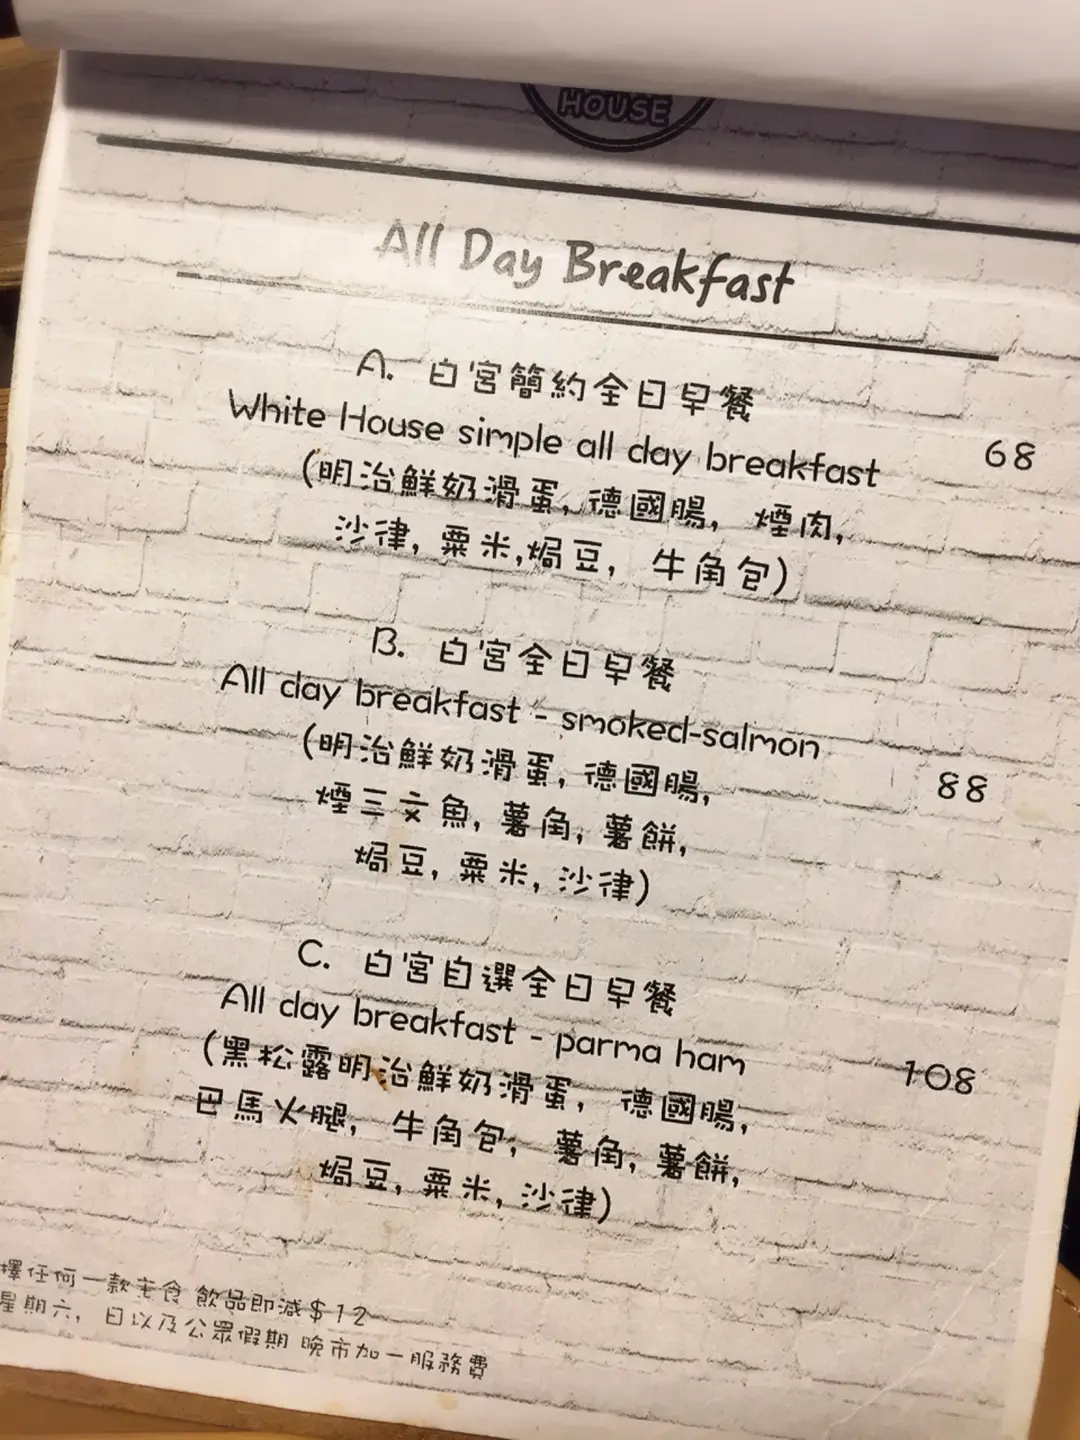 HOUSE
All Day Breakfast
A. 白宮簡約全日早餐
White House simple all day breakfast 68
(明治鮮奶滑蛋, 德國腸, 煙肉,
沙律, 粟米,焗豆, 牛角包)
B. 白宮全日早餐
All day breakfast - smoked-salmon
(明治鮮奶滑蛋, 德國腸, 88
煙三文魚, 薯角, 薯餅,
焗豆, 粟米, 沙律)
C. 白宮自選全日早餐
All day breakfast - parma ham 108
(黑松露明治鮮奶滑蛋, 德國腸,
巴馬火腿, 牛角包, 薯角, 薯餅,
焗豆, 粟米, 沙律)
擇任何一款主食 飲品即減$12
星期六, 日以及公眾假期 晚市加一服務費